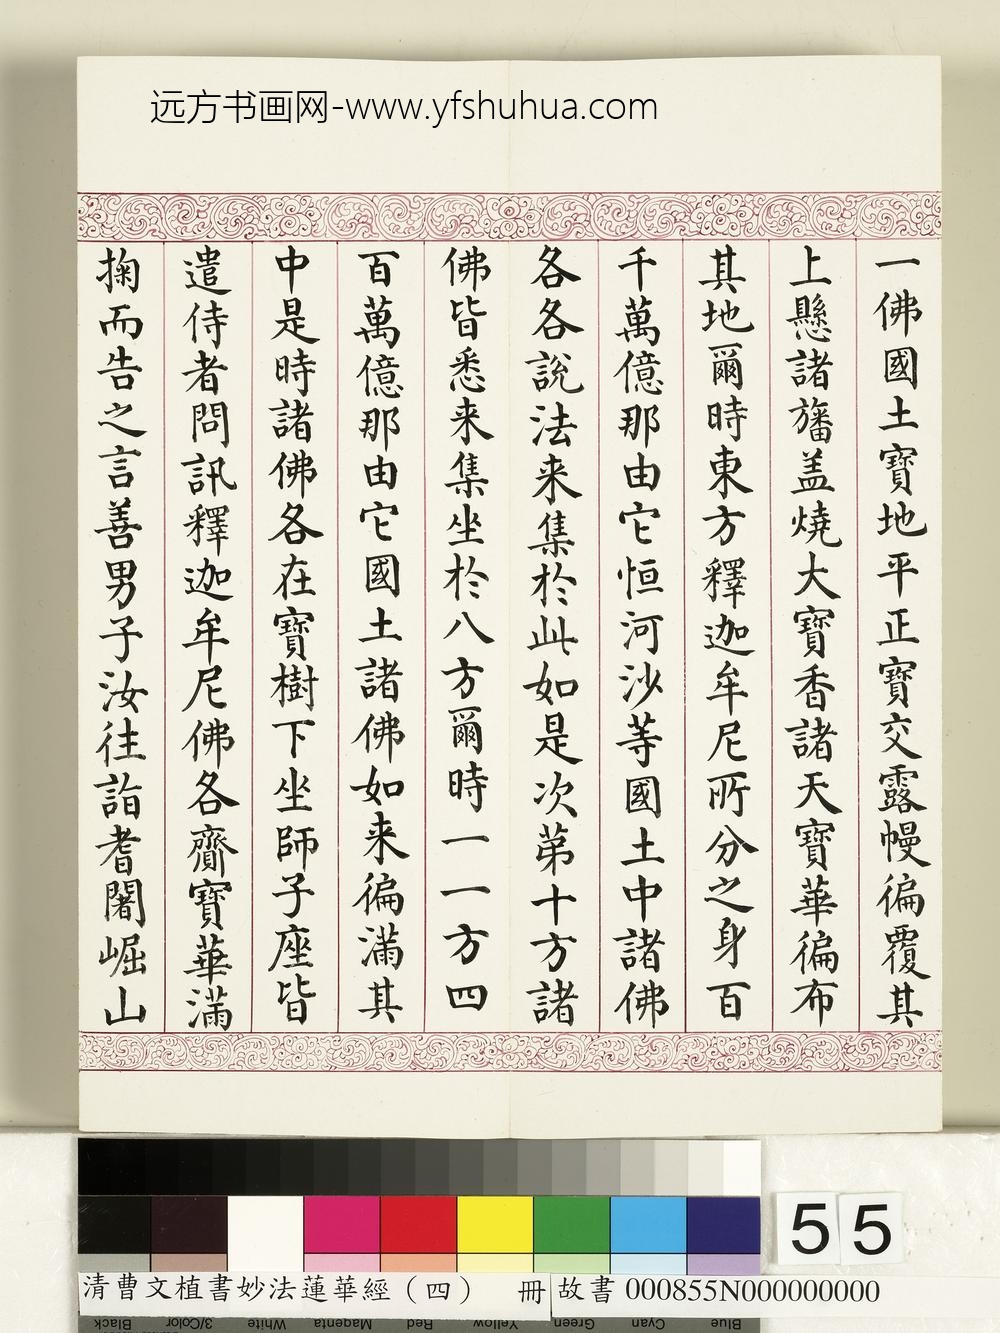 远方书画网-www.yfshuhua.com
一佛國土寶地平正寶交露幔徧覆其
上懸諸旛盖燒大寶香諸天寶華徧布
其地爾時東方釋迦牟尼所分之身百
千萬億那由它恒河沙等國土中諸佛
各各說法来集於此如是次苐十方諸
佛皆悉来集坐於八方爾時一一方四
百萬億那由它國土諸佛如来徧滿其
中是時諸佛各在寶樹下坐師子座皆
遣侍者問訊釋迦牟尼佛各齎寶華滿
掬而告之言善男子汝往詣耆闍崛山
55
清曹文植書妙法蓮華經（四） 冊 故書 000855N000000000
Black 3/Color White Magenta Red Yellow Green Cyan Blue